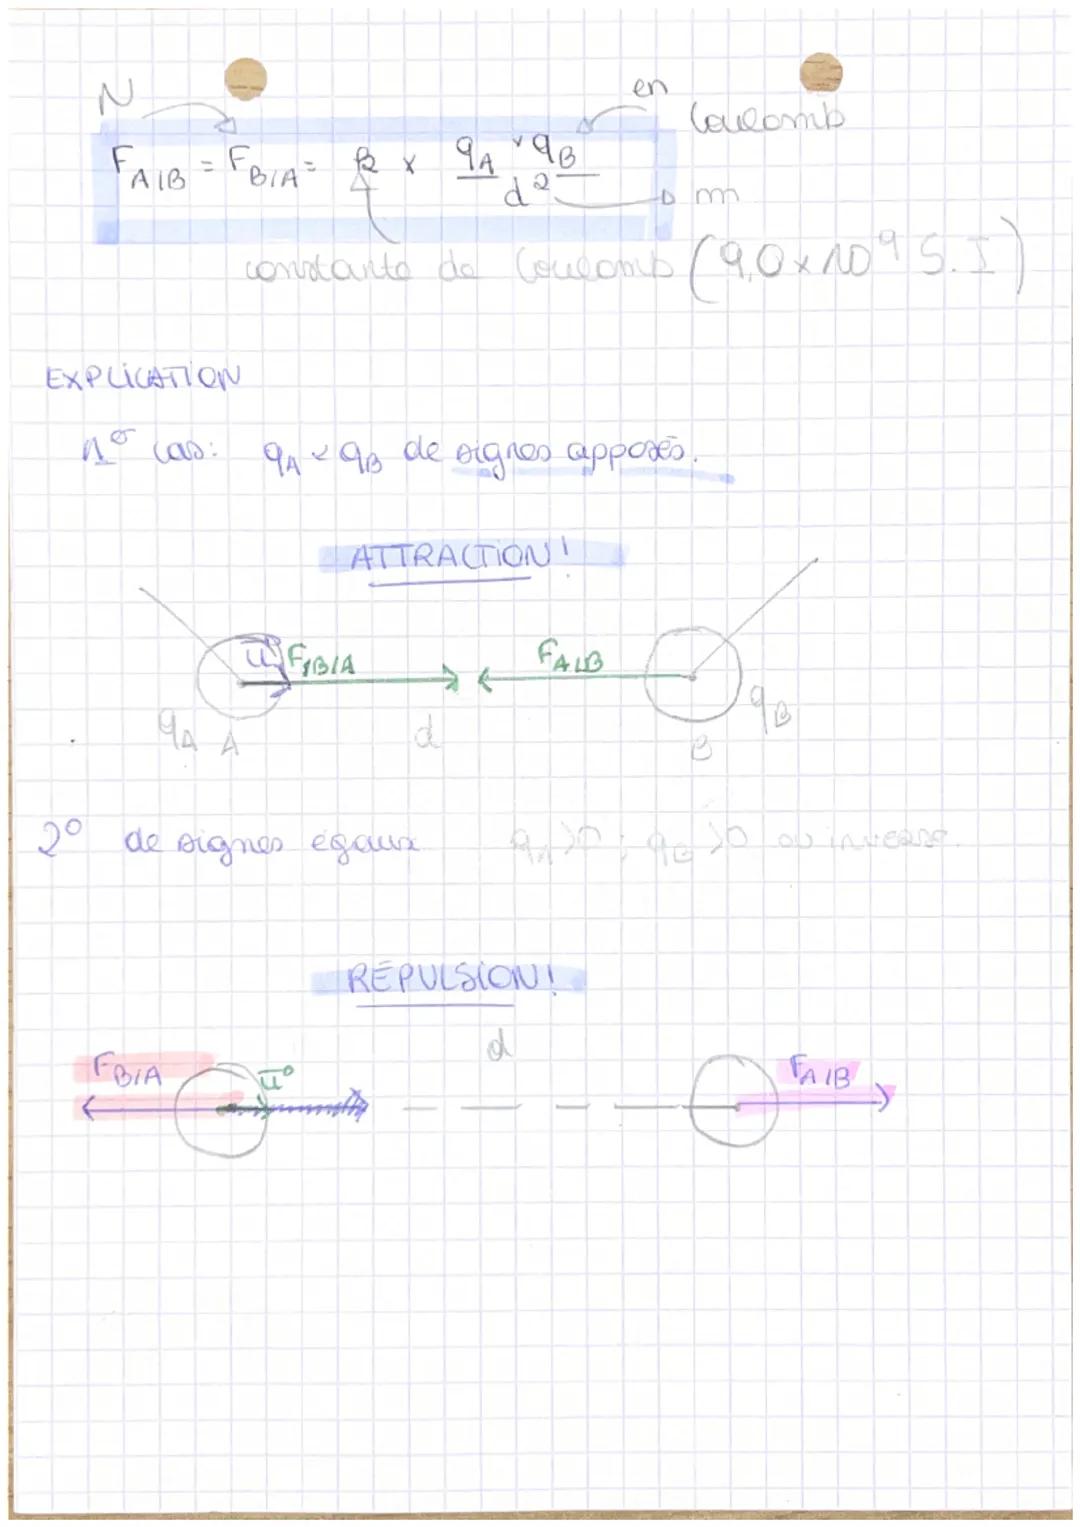 N
en
Coulomb
F A/B = F B/A = k x qA x qB
d²
m
constante de Coulomb (9,0 x 10⁹ S.I)
EXPLICATION
1° cas: qA et qB de signes opposés.
ATTRACTION!
u F B/A F A/B
qA A d B qB
2° de signes égaux qA>0, qB>0 ou inverse.
RÉPULSION!
d
F B/A u F A/B